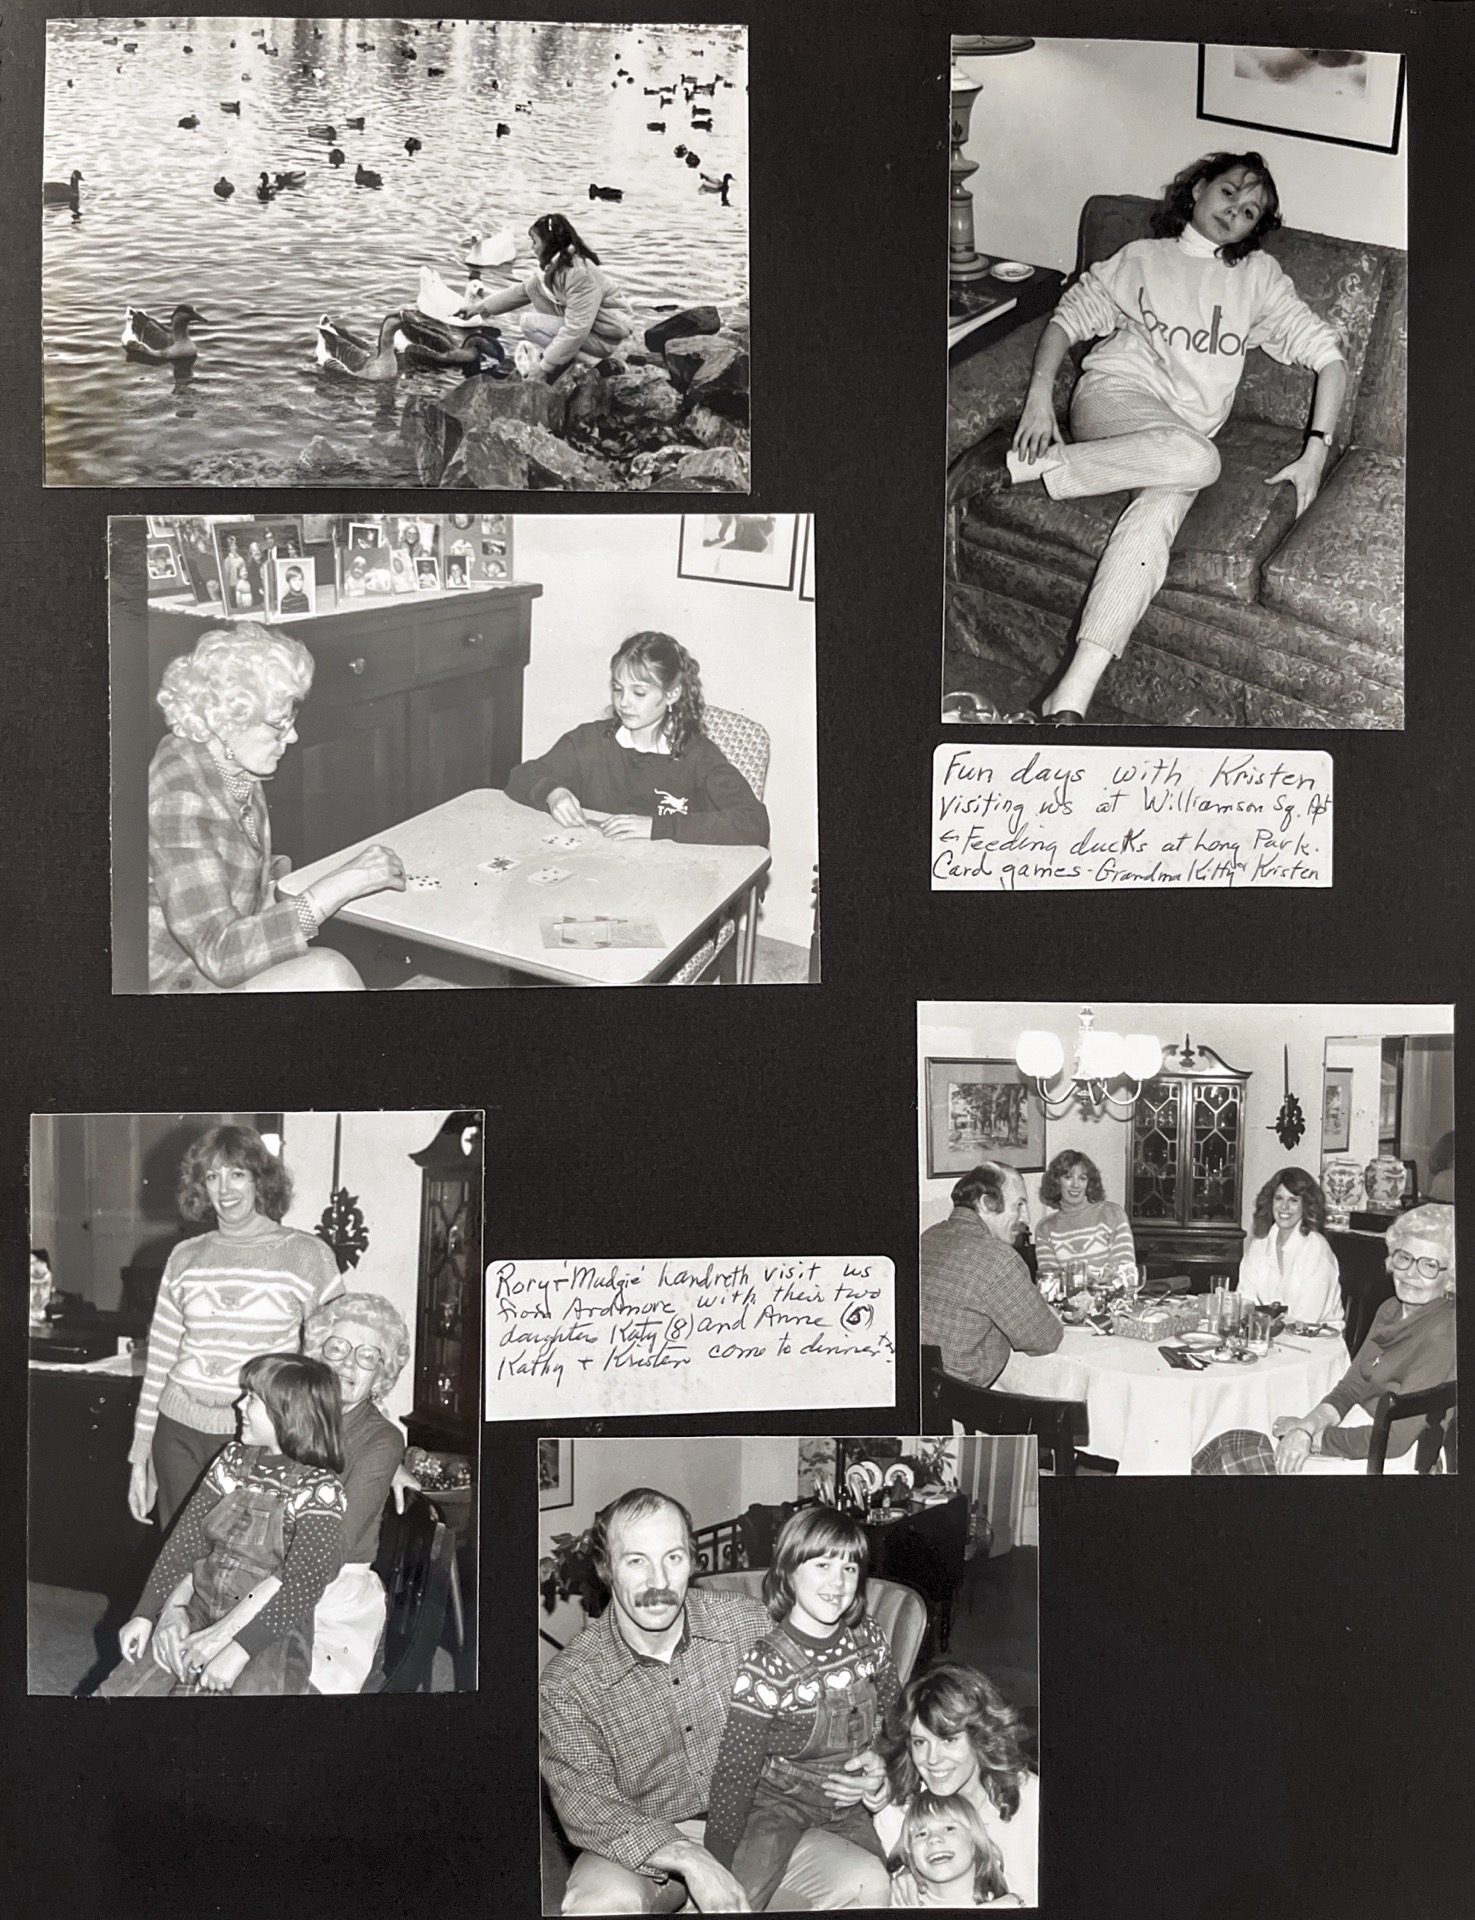 benetton
Fun days with Kristen
visiting us at Williamson Sq. Apt
← Feeding ducks at Long Park.
Card games - Grandma Kitty & Kristen
Rory + "Mudgie" Landreth visit us
from Ardmore with their two
daughters Katy (8) and Anne (5)
Kathy + Kristen come to dinner